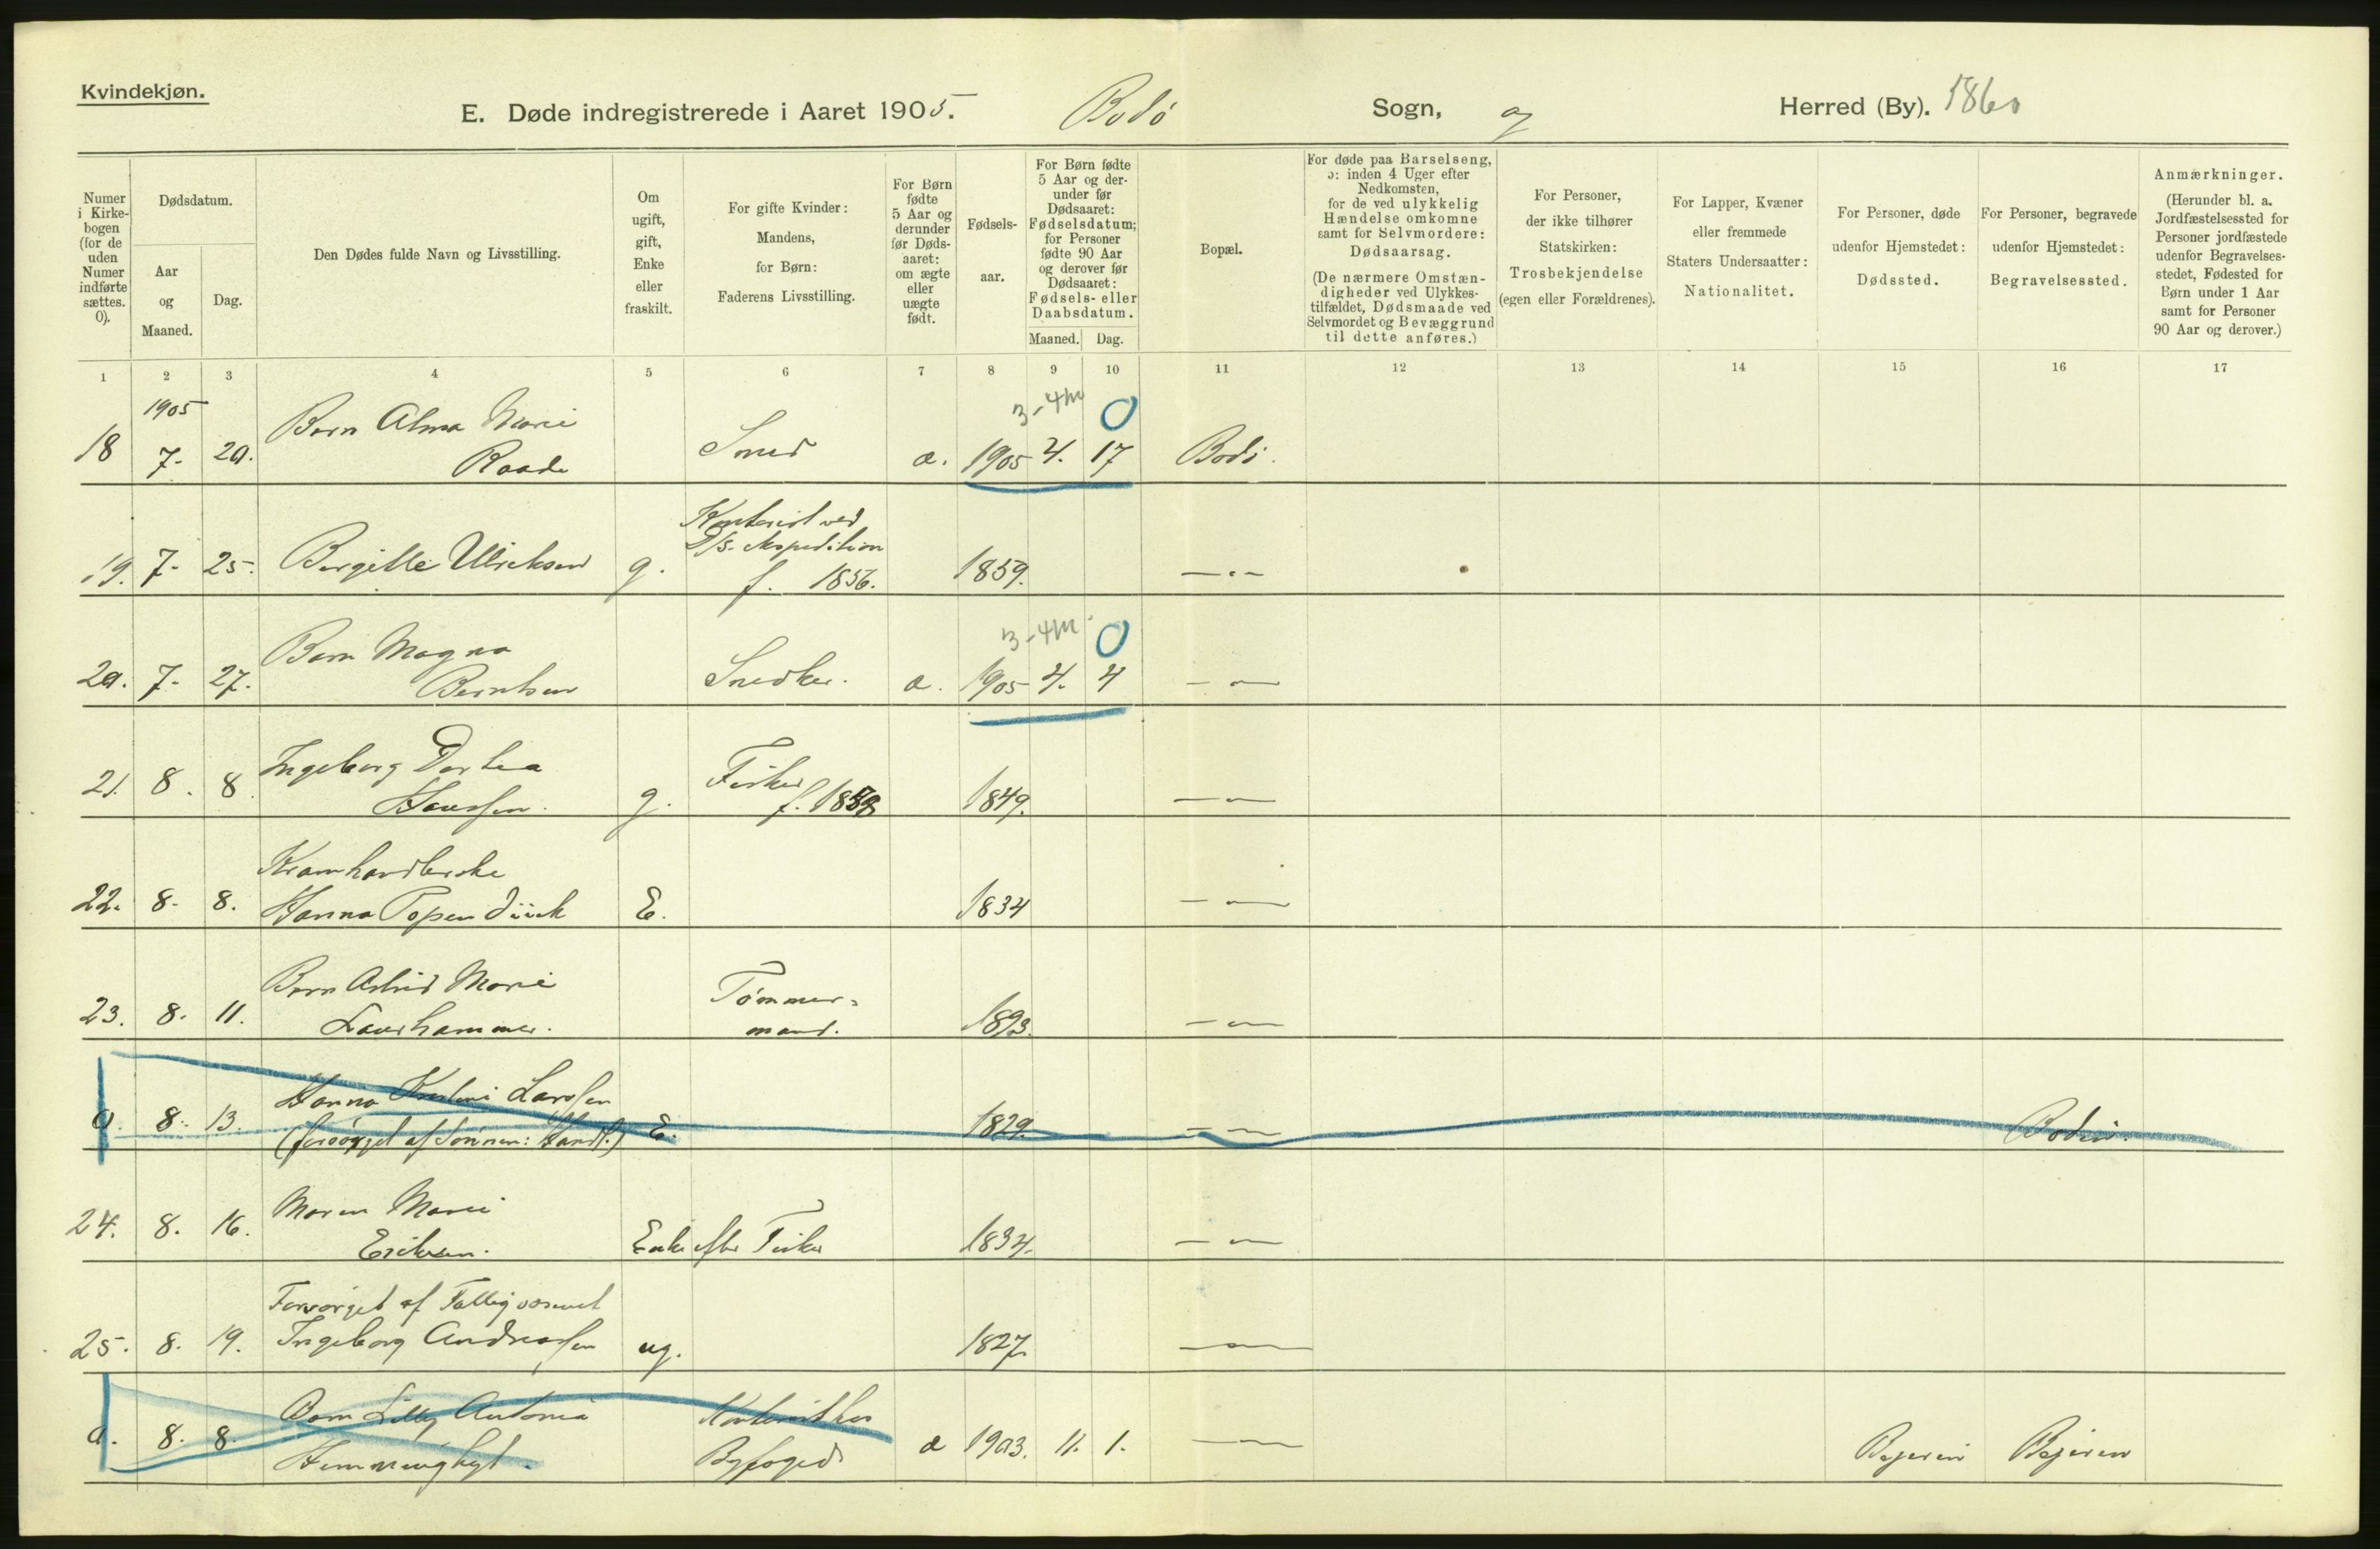 Kvindekjøn.
E. Døde indregistrerede i Aaret 1905. Bodø Sogn, og Herred (By). 1860
Numer i Kirke-bogen (for de uden Numer indførte sættes. 0).
Dødsdatum.
Aar og Maaned.
Dag.
Den Dødes fulde Navn og Livsstilling.
Om ugift, gift, Enke eller fraskilt.
For gifte Kvinder: Mandens, for Børn: Faderens Livsstilling.
For Børn fødte 5 Aar og derunder før Døds-aaret: om ægte eller uægte født.
Fødsels-aar.
For Børn fødte 5 Aar og der-under før Dødsaaret: Fødselsdatum; for Personer fødte 90 Aar og derover før Dødsaaret: Fødsels- eller Daabsdatum.
Maaned. Dag.
Bopæl.
For døde paa Barselseng, ɔ: inden 4 Uger efter Nedkomsten, for de ved ulykkelig Hændelse omkomne samt for Selvmordere: Dødsaarsag.
(De nærmere Omstæn-digheder ved Ulykkes-tilfældet, Dødsmaade ved Selvmordet og Bevæggrund til dette anføres.)
For Personer, der ikke tilhører Statskirken: Trosbekjendelse (egen eller Forældrenes).
For Lapper, Kvæner eller fremmede Staters Undersaatter: Nationalitet.
For Personer, døde udenfor Hjemstedet: Dødssted.
For Personer, begravede udenfor Hjemstedet: Begravelsessted.
Anmærkninger.
(Herunder bl. a. Jordfæstelsessted for Personer jordfæstede udenfor Begravelses-stedet, Fødested for Børn under 1 Aar samt for Personer 90 Aar og derover.)
1 2 3 4 5 6 7 8 9 10 11 12 13 14 15 16 17
1905 3-4m 0
Barn Alma Marie
18 7. 20. Raade Smed æ. 1905 4. 17 Bodø.
Kontorist ved
D/S. Expedition
19. 7. 25. Bergitte Ulriksen g. f. 1856. 1859. —"—
3-4m. 0
Barn Magna
20. 7. 27. Berntsen Snedker. æ. 1905 4. 4 —"—
Ingeborg Dortea Fisker
21. 8. 8. Hanssen. g. f. 1849. —"—
Kramhandlerske
22. 8. 8. Hanna Papendiick E. 1834 —"—
Barn Astrid Marie Tømmer-
23. 8. 11. Laurhammer. mand. 1893. —"—
Hanna Larssen
0. 8. 13. (forsørget af Sønnen: Handl.) E. 1829. —"— Bodin.
Maren Marie
24. 8. 16. Eriksen. Enke efter Fisker 1834. —"—
Forsørget af Fattigvæsenet
25. 8. 19. Ingeborg Andreassen ug. 1827. —"—
Barn Lilly Antonia Kontorist hos
0. 8. 8. Byfoged æ 1903. 11. 1. —"— Bejeren Bejeren